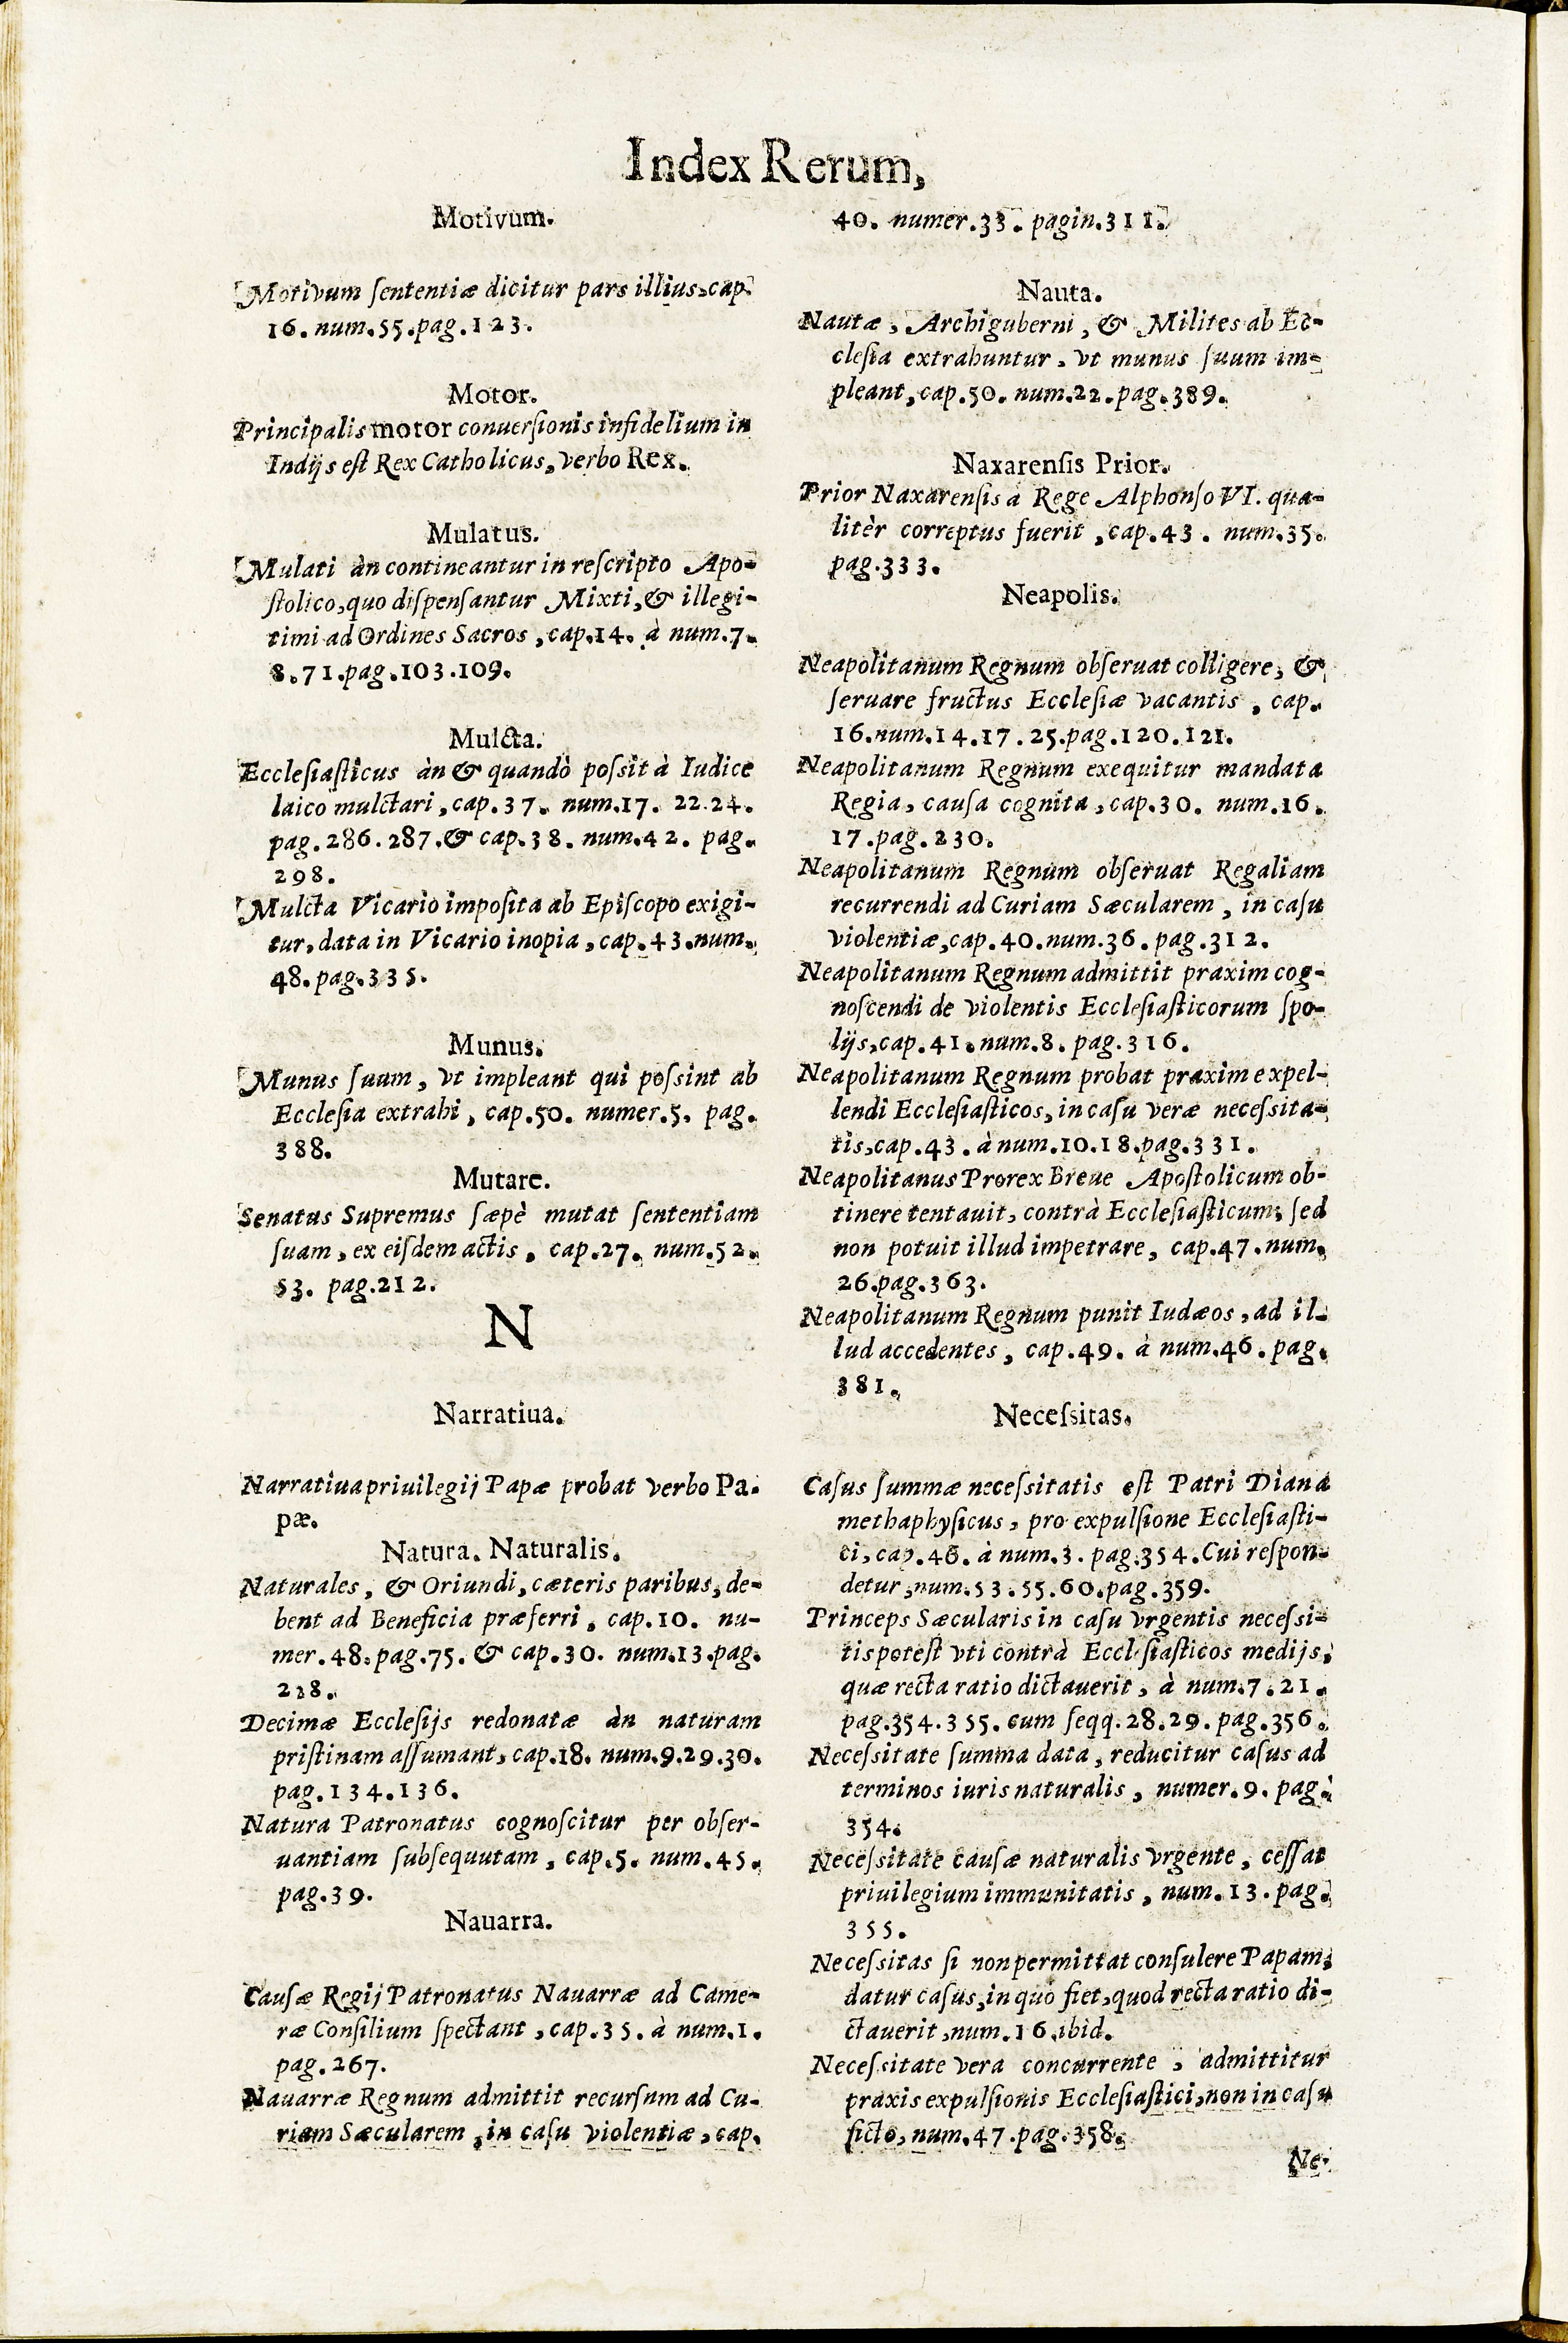 Index Rerum,
Motivum.
Motivum sententiæ dicitur pars illius, cap.
16. num. 55. pag. 123.
Motor.
Principalis motor conuersionis infidelium in
Indijs est Rex Catholicus, verbo Rex.
Mulatus.
Mulati àn contineantur in rescripto Apo-
stolico, quo dispensantur Mixti, & illegi-
timi ad Ordines Sacros, cap. 14. à num. 7.
8. 71. pag. 103. 109.
Mulcta.
Ecclesiasticus àn & quandò possit à Iudice
laico mulctari, cap. 37. num. 17. 22. 24.
pag. 286. 287. & cap. 38. num. 42. pag.
298.
Mulcta Vicario imposita ab Episcopo exigi-
tur, data in Vicario inopia, cap. 43. num.
48. pag. 335.
Munus.
Munus suum, vt impleant qui possint ab
Ecclesia extrahi, cap. 50. numer. 5. pag.
388.
Mutare.
Senatus Supremus sæpè mutat sententiam
suam, ex eisdem actis, cap. 27. num. 52.
53. pag. 212.
N
Narratiua.
Narratiua priuilegij Papæ probat verbo Pa-
pæ.
Natura. Naturalis.
Naturales, & Oriundi, cæteris paribus, de-
bent ad Beneficia præferri, cap. 10. nu-
mer. 48. pag. 75. & cap. 30. num. 13. pag.
228.
Decimæ Ecclesijs redonatæ àn naturam
pristinam assumant, cap. 18. num. 9. 29. 30.
pag. 134. 136.
Natura Patronatus cognoscitur per obser-
uantiam subsequutam, cap. 5. num. 45.
pag. 39.
Nauarra.
Causæ Regij Patronatus Nauarræ ad Came-
ræ Consilium spectant, cap. 35. à num. 1.
pag. 267.
Nauarræ Regnum admittit recursum ad Cu-
riam Sæcularem, in casu violentiæ, cap.
40. numer. 33. pagin. 311.
Nauta.
Nautæ, Archiguberni, & Milites ab Ec-
clesia extrahuntur, vt munus suum im-
pleant, cap. 50. num. 22. pag. 389.
Naxarensis Prior.
Prior Naxarensis à Rege Alphonso VI. qua-
litèr correptus fuerit, cap. 43. num. 35.
pag. 333.
Neapolis.
Neapolitanum Regnum obseruat colligere, &
seruare fructus Ecclesiæ vacantis, cap.
16. num. 14. 17. 25. pag. 120. 121.
Neapolitanum Regnum exequitur mandata
Regia, causa cognita, cap. 30. num. 16.
17. pag. 230.
Neapolitanum Regnum obseruat Regaliam
recurrendi ad Curiam Sæcularem, in casu
violentiæ, cap. 40. num. 36. pag. 312.
Neapolitanum Regnum admittit praxim cog-
noscendi de violentis Ecclesiasticorum spo-
lijs, cap. 41. num. 8. pag. 316.
Neapolitanum Regnum probat praxim expel-
lendi Ecclesiasticos, in casu veræ necessita-
tis, cap. 43. à num. 10. 18. pag. 331.
Neapolitanus Prorex Breue Apostolicum ob-
tinere tentauit, contrà Ecclesiasticum, sed
non potuit illud impetrare, cap. 47. num.
26. pag. 363.
Neapolitanum Regnum punit Iudæos, ad il-
lud accedentes, cap. 49. à num. 46. pag.
381.
Necessitas.
Casus summæ necessitatis est Patri Diana
methaphysicus, pro expulsione Ecclesiasti-
ci, cap. 46. à num. 3. pag. 354. Cui respon-
detur, num. 53. 55. 60. pag. 359.
Princeps Sæcularis in casu vrgentis necessi-
tis potest vti contrà Ecclesiasticos medijs,
quæ recta ratio dictauerit, à num. 7. 21.
pag. 354. 355. cum seqq. 28. 29. pag. 356.
Necessitate summa data, reducitur casus ad
terminos iuris naturalis, numer. 9. pag.
354.
Necessitate causæ naturalis vrgente, cessat
priuilegium immunitatis, num. 13. pag.
355.
Necessitas si non permittat consulere Papam,
datur casus, in quo fiet, quod recta ratio di-
ctauerit, num. 16. ibid.
Necessitate vera concurrente, admittitur
praxis expulsionis Ecclesiastici, non in casu
ficto, num. 47. pag. 358.
Ne-